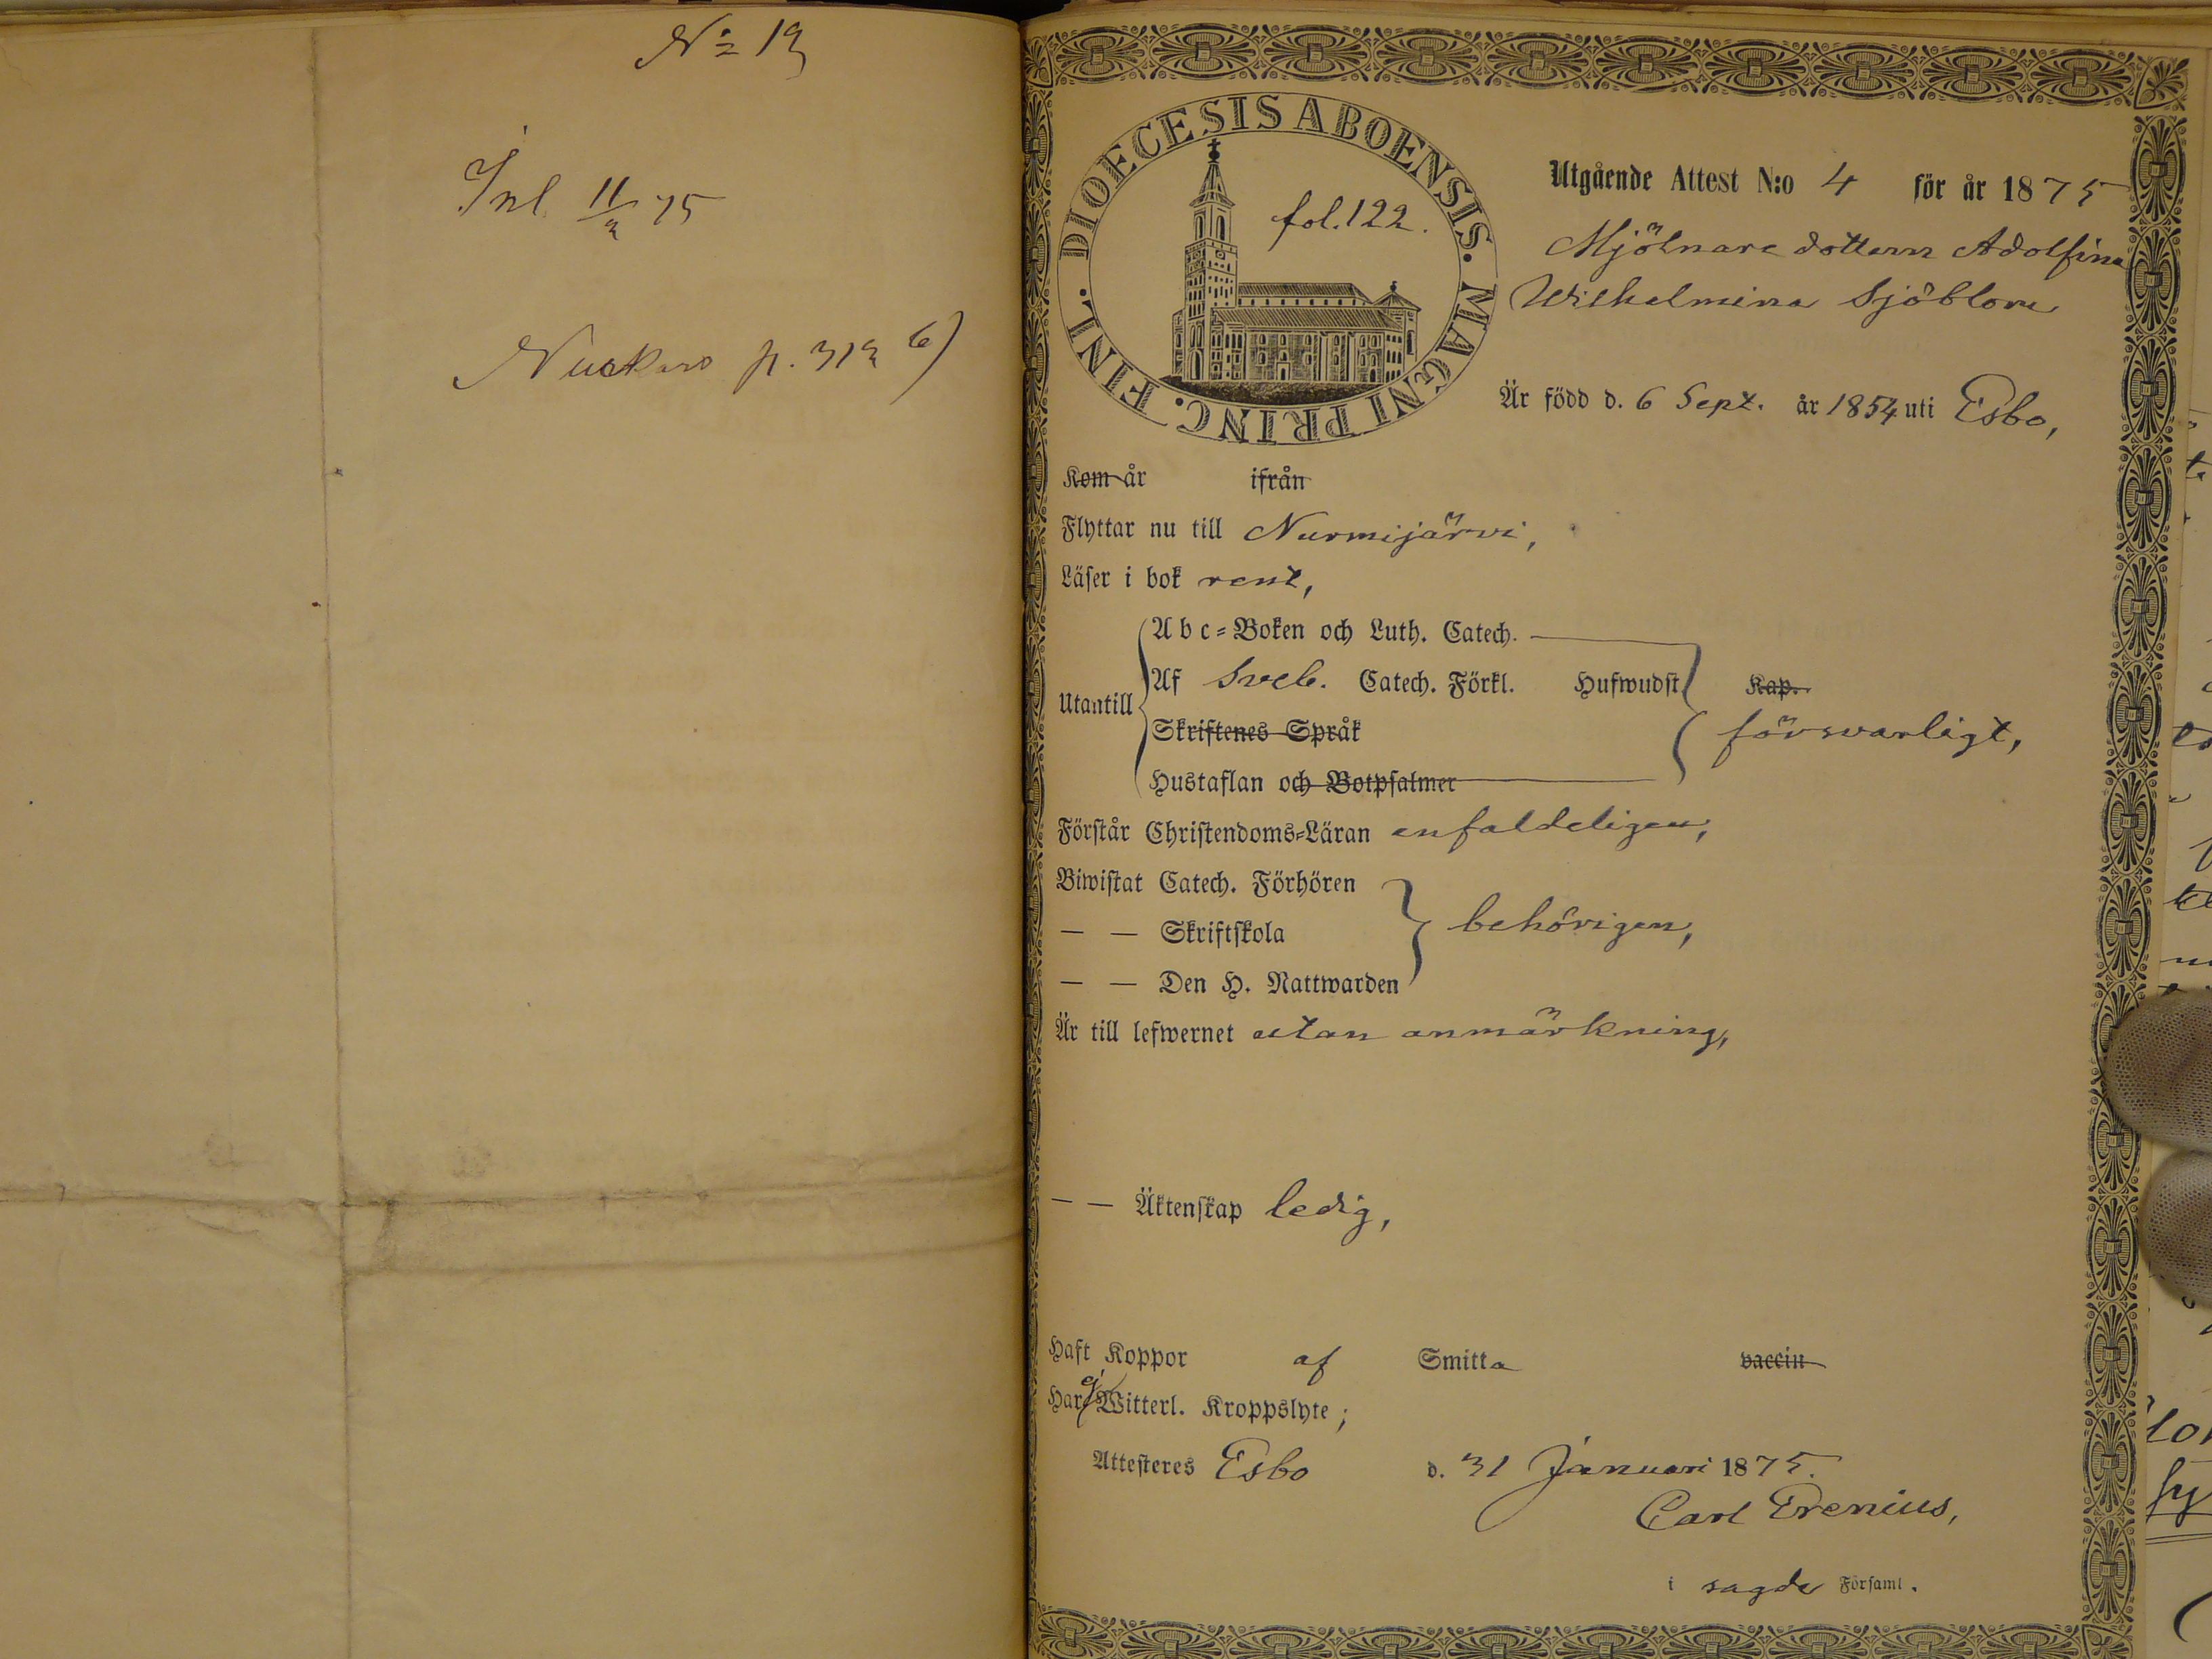 No 13
Inl. 11/3 75
Nuckars p. 313 b)
DIOECESIS ABOENSIS. MAGNI PRINC. FINL.
fol. 122.
Utgående Attest N:o 4 för år 1875
Mjölnare dottern Adolfina
Wilhelmina Sjöblom
Är född d. 6 Sept. år 1854 uti Esbo,
Kom år ifrån
Flyttar nu till Nurmijärvi,
Läser i bok rent,
Abc-Boken och Luth. Catech.
Utantill
Af Sveb. Catech. Förkl. Hufwudst Kap.
Skriftenes Språk
försvarligt,
Hustaflan och Botpsalmer
Förstår Christendoms-Läran enfaldeligen,
Biwistat Catech. Förhören
— — Skriftskola
behörigen,
— — Den H. Nattwarden
Är till lefwernet utan anmärkning,
— — Äktenskap ledig,
Haft Koppor af Smitta vaccin
Har ej Witterl. Kroppslyte;
Attesteres Esbo d. 31 Januari 1875.
Carl Erenius,
i sagde Församl.